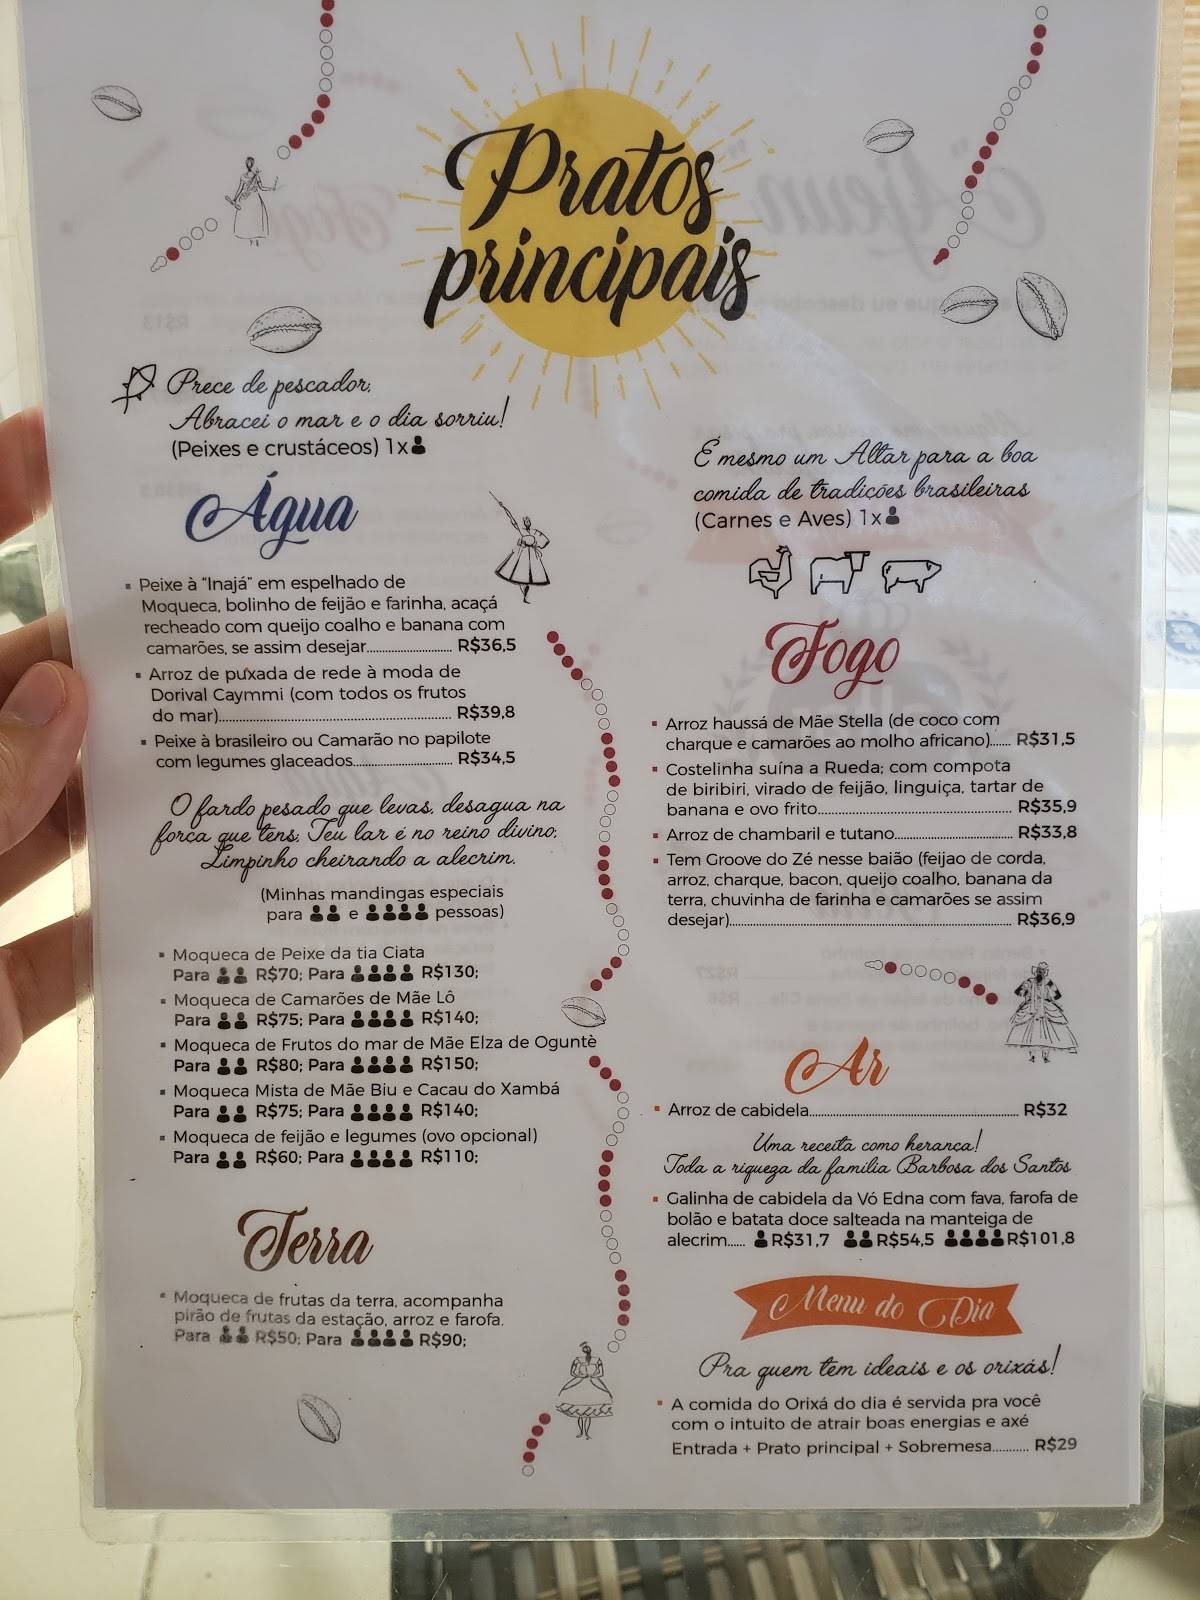 Pratos
principais
Prece de pescador;
Abracei o mar e o dia sorriu!
(Peixes e crustáceos) 1x
Água
Peixe à "Inajá" em espelhado de
Moqueca, bolinho de feijão e farinha, acaçá
recheado com queijo coalho e banana com
camarões, se assim desejar.......................... R$36,5
Arroz de puxada de rede à moda de
Dorival Caymmi (com todos os frutos
do mar)...................................................................... R$39,8
Peixe à brasileiro ou Camarão no papilote
com legumes glaceados.............................. R$34,5
O fardo pesado que levas, desagua na
força que tens. Teu lar é no reino divino;
Limpinho cheirando a alecrim.
(Minhas mandingas especiais
para e pessoas)
Moqueca de Peixe da tia Ciata
Para R$70; Para R$130;
Moqueca de Camarões de Mãe Lô
Para R$75; Para R$140;
Moqueca de Frutos do mar de Mãe Elza de Oguntè
Para R$80; Para R$150;
Moqueca Mista de Mãe Biu e Cacau do Xambá
Para R$75; Para R$140;
Moqueca de feijão e legumes (ovo opcional)
Para R$60; Para R$110;
Terra
Moqueca de frutas da terra, acompanha
pirão de frutas da estação, arroz e farofa.
Para R$50; Para R$90;
É mesmo um Altar para a boa
comida de tradições brasileiras
(Carnes e Aves) 1x
Fogo
Arroz haussá de Mãe Stella (de coco com
charque e camarões ao molho africano)...... R$31,5
Costelinha suína a Rueda; com compota
de biribiri, virado de feijão, linguiça, tartar de
banana e ovo frito........................................................... R$35,9
Arroz de chambaril e tutano................................... R$33,8
Tem Groove do Zé nesse baião (feijao de corda,
arroz, charque, bacon, queijo coalho, banana da
terra, chuvinha de farinha e camarões se assim
desejar).................................................................................... R$36,9
Ar
Arroz de cabidela.............................................................. R$32
Uma receita como herança!
Toda a riqueza da familia Barbosa dos Santos
Galinha de cabidela da Vó Edna com fava, farofa de
bolão e batata doce salteada na manteiga de
alecrim...... R$31,7 R$54,5 R$101,8
Menu do Dia
Pra quem tem ideais e os orixás!
A comida do Orixá do dia é servida pra você
com o intuito de atrair boas energias e axé
Entrada + Prato principal + Sobremesa........... R$29